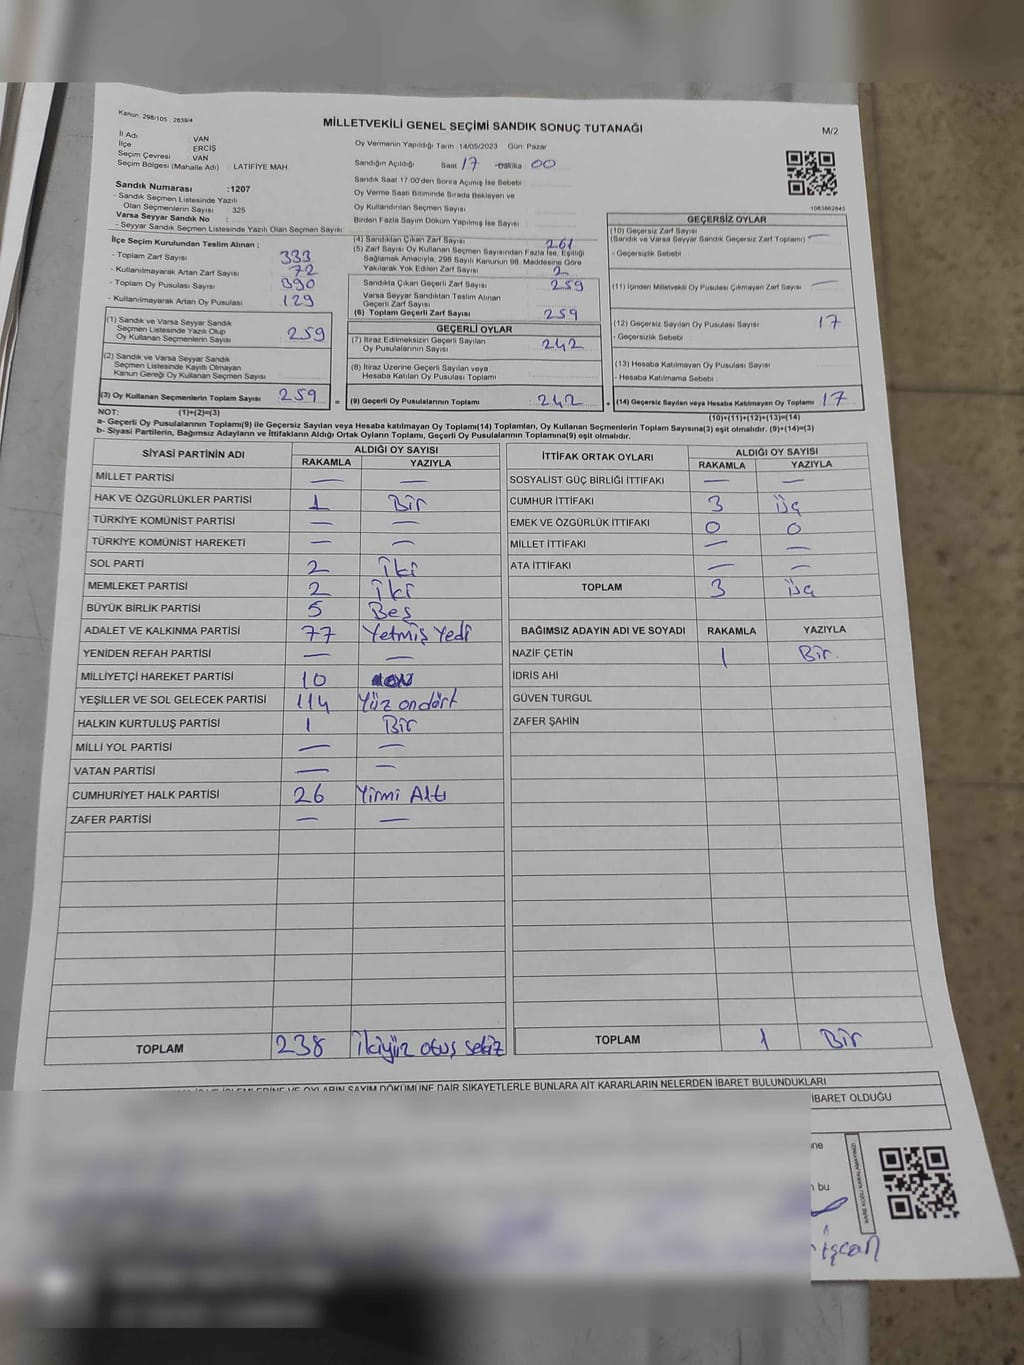 Kanun: 298/105 , 2839/4
MİLLETVEKİLİ GENEL SEÇİMİ SANDIK SONUÇ TUTANAĞI
M/2
İl Adı : VAN
İlçe : ERCİŞ
Seçim Çevresi : VAN
Seçim Bölgesi (Mahalle Adı) : LATİFİYE MAH
Oy Vermenin Yapıldığı Tarih :14/05/2023 Gün: Pazar
Sandığın Açıldığı Saat 17 Dakika 00
Sandık Saat 17:00'den Sonra Açılmış İse Sebebi
Oy Verme Saati Bitiminde Sırada Bekleyen ve
Oy Kullandırılan Seçmen Sayısı
Birden Fazla Sayım Döküm Yapılmış İse Sayısı
Sandık Numarası :1207
- Sandık Seçmen Listesinde Yazılı
Olan Seçmenlerin Sayısı : 325
Varsa Seyyar Sandık No :
- Seyyar Sandık Seçmen Listesinde Yazılı Olan Seçmen Sayısı:
İlçe Seçim Kurulundan Teslim Alınan :
- Toplam Zarf Sayısı 333
- Kullanılmayarak Artan Zarf Sayısı 72
- Toplam Oy Pusulası Sayısı 390
- Kullanılmayarak Artan Oy Pusulası 129
(1) Sandık ve Varsa Seyyar Sandık
Seçmen Listesinde Yazılı Olup
Oy Kullanan Seçmenlerin Sayısı 259
(2) Sandık ve Varsa Seyyar Sandık
Seçmen Listesinde Kayıtlı Olmayan
Kanun Gereği Oy Kullanan Seçmen Sayısı
(3) Oy Kullanan Seçmenlerin Toplam Sayısı 259 =
(4) Sandıktan Çıkan Zarf Sayısı 261
(5) Zarf Sayısı Oy Kullanan Seçmen Sayısından Fazla İse, Eşitliği
Sağlamak Amacıyla, 298 Sayılı Kanunun 98. Maddesine Göre
Yakılarak Yok Edilen Zarf Sayısı 2
Sandıkta Çıkan Geçerli Zarf Sayısı 259
Varsa Seyyar Sandıktan Teslim Alınan
Geçerli Zarf Sayısı
(6) Toplam Geçerli Zarf Sayısı 259
GEÇERLİ OYLAR
(7) İtiraz Edilmeksizin Geçerli Sayılan
Oy Pusulalarının Sayısı 242
(8) İtiraz Üzerine Geçerli Sayılan veya
Hesaba Katılan Oy Pusulası Toplamı
(9) Geçerli Oy Pusulalarının Toplamı 242 +
1083862845
GEÇERSİZ OYLAR
(10) Geçersiz Zarf Sayısı
(Sandık ve Varsa Seyyar Sandık Geçersiz Zarf Toplamı) —
- Geçersizlik Sebebi
(11) İçinden Milletvekili Oy Pusulası Çıkmayan Zarf Sayısı —
(12) Geçersiz Sayılan Oy Pusulası Sayısı 17
- Geçersizlik Sebebi
(13) Hesaba Katılmayan Oy Pusulası Sayısı
- Hesaba Katılmama Sebebi
(14) Geçersiz Sayılan veya Hesaba Katılmayan Oy Toplamı 17
NOT: (1)+(2)=(3)
(10)+(11)+(12)+(13)=(14)
a- Geçerli Oy Pusulalarının Toplamı(9) ile Geçersiz Sayılan veya Hesaba Katılmayan Oy Toplamı(14) Toplamları, Oy Kullanan Seçmenlerin Toplam Sayısına(3) eşit olmalıdır. (9)+(14)=(3)
b- Siyasi Partilerin, Bağımsız Adayların ve İttifakların Aldığı Ortak Oyların Toplamı, Geçerli Oy Pusulalarının Toplamına(9) eşit olmalıdır.
SİYASİ PARTİNİN ADI ALDIĞI OY SAYISI
RAKAMLA YAZIYLA
MİLLET PARTİSİ — —
HAK VE ÖZGÜRLÜKLER PARTİSİ 1 Bir
TÜRKİYE KOMÜNİST PARTİSİ — —
TÜRKİYE KOMÜNİST HAREKETİ — —
SOL PARTİ 2 İki
MEMLEKET PARTİSİ 2 İki
BÜYÜK BİRLİK PARTİSİ 5 Beş
ADALET VE KALKINMA PARTİSİ 77 Yetmiş Yedi
YENİDEN REFAH PARTİSİ — —
MİLLİYETÇİ HAREKET PARTİSİ 10 on
YEŞİLLER VE SOL GELECEK PARTİSİ 114 Yüz ondört
HALKIN KURTULUŞ PARTİSİ 1 Bir
MİLLİ YOL PARTİSİ — —
VATAN PARTİSİ — —
CUMHURİYET HALK PARTİSİ 26 Yirmi Altı
ZAFER PARTİSİ — —
TOPLAM 238 ikiyüz otuz sekiz
İTTİFAK ORTAK OYLARI ALDIĞI OY SAYISI
RAKAMLA YAZIYLA
SOSYALİST GÜÇ BİRLİĞİ İTTİFAKI — —
CUMHUR İTTİFAKI 3 üç
EMEK VE ÖZGÜRLÜK İTTİFAKI 0 0
MİLLET İTTİFAKI — —
ATA İTTİFAKI — —
TOPLAM 3 üç
BAĞIMSIZ ADAYIN ADI VE SOYADI RAKAMLA YAZIYLA
NAZİF ÇETİN 1 Bir
İDRİS AHİ
GÜVEN TURGUL
ZAFER ŞAHİN
TOPLAM 1 Bir
OYLARIN SAYIM DÖKÜMÜNE DAİR ŞİKAYETLERLE BUNLARA AİT KARARLARIN NELERDEN İBARET BULUNDUKLARI
İBARET OLDUĞU
bu